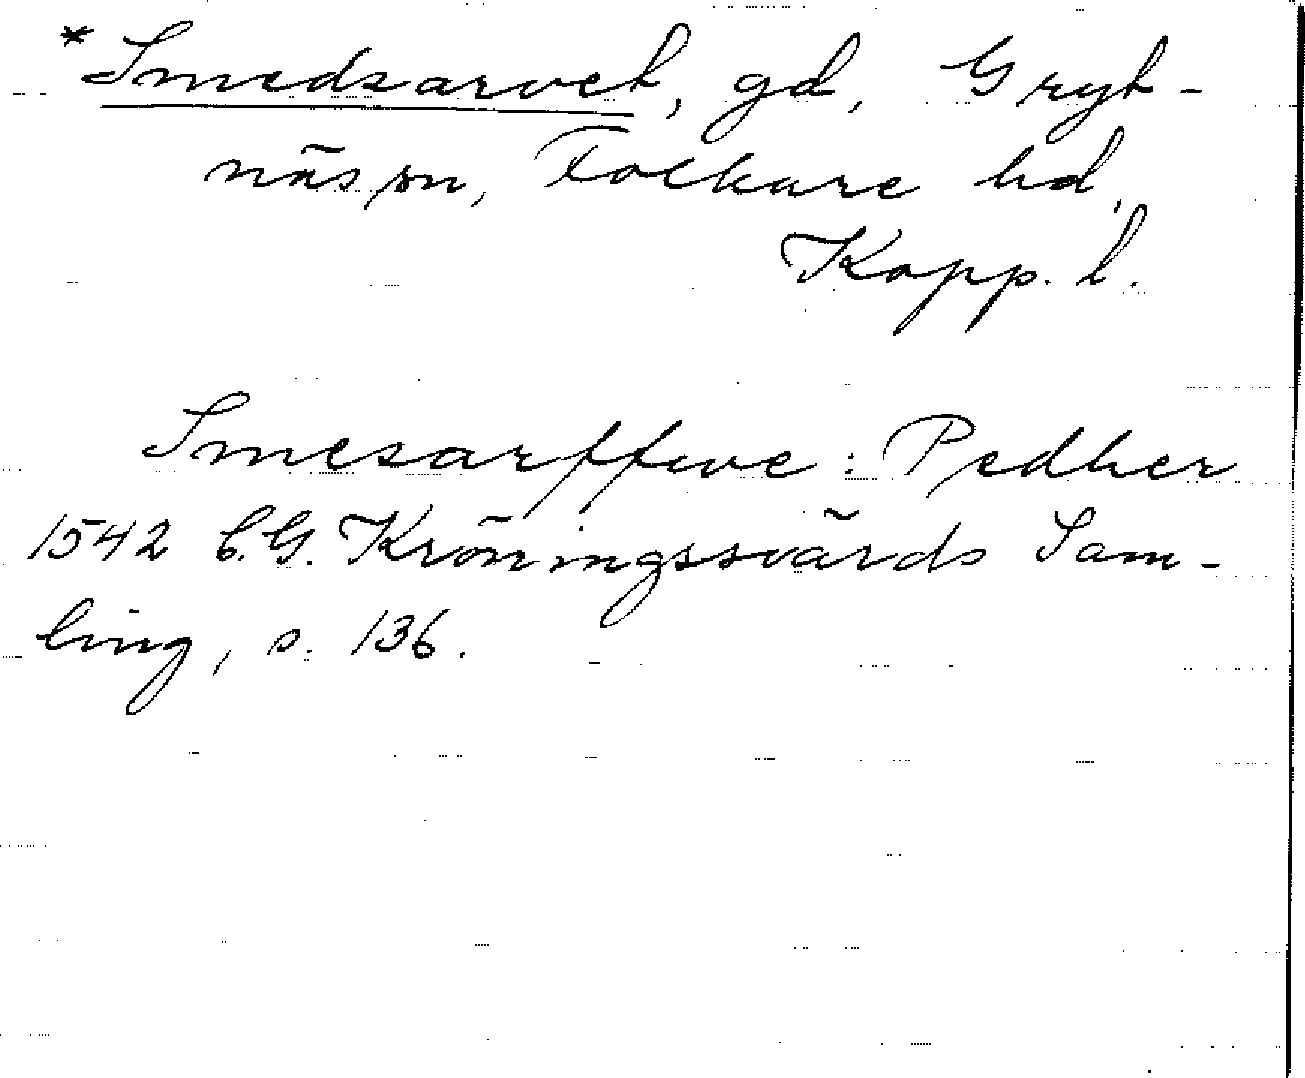 *Smedsarvet, gd, Gryt-
näs sn, Folkare hd,
Kopp. l.
Smesarffwe : Pedher
1542 C.G. Kröningssvärds Sam-
ling, s. 136.